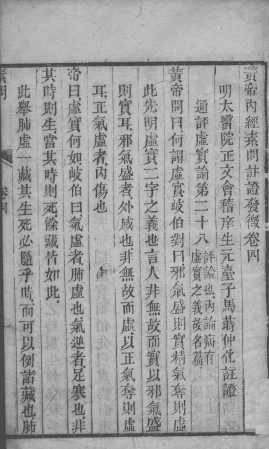 黃帝內經素問註證發微卷四
明太醫院正文會稽庠生元臺子馬蒔仲化註證
通評虛實論第二十八
評論也內論病有
虛實之義故名篇
黃帝問曰何謂虛實岐伯對曰邪氣盛則實精氣奪則虛
此先明虛實二字之義也言人非無故而實以邪氣盛
則實耳邪氣盛者外感也非無故而虛以正氣奪則虛
耳正氣虛者內傷也
帝曰虛實何如岐伯曰氣虛者肺虛也氣逆者足寒也非
其時則生當其時則死餘藏皆如此
此舉肺虛一藏其生死必隨乎時而可以例諸藏也肺
素問
卷四